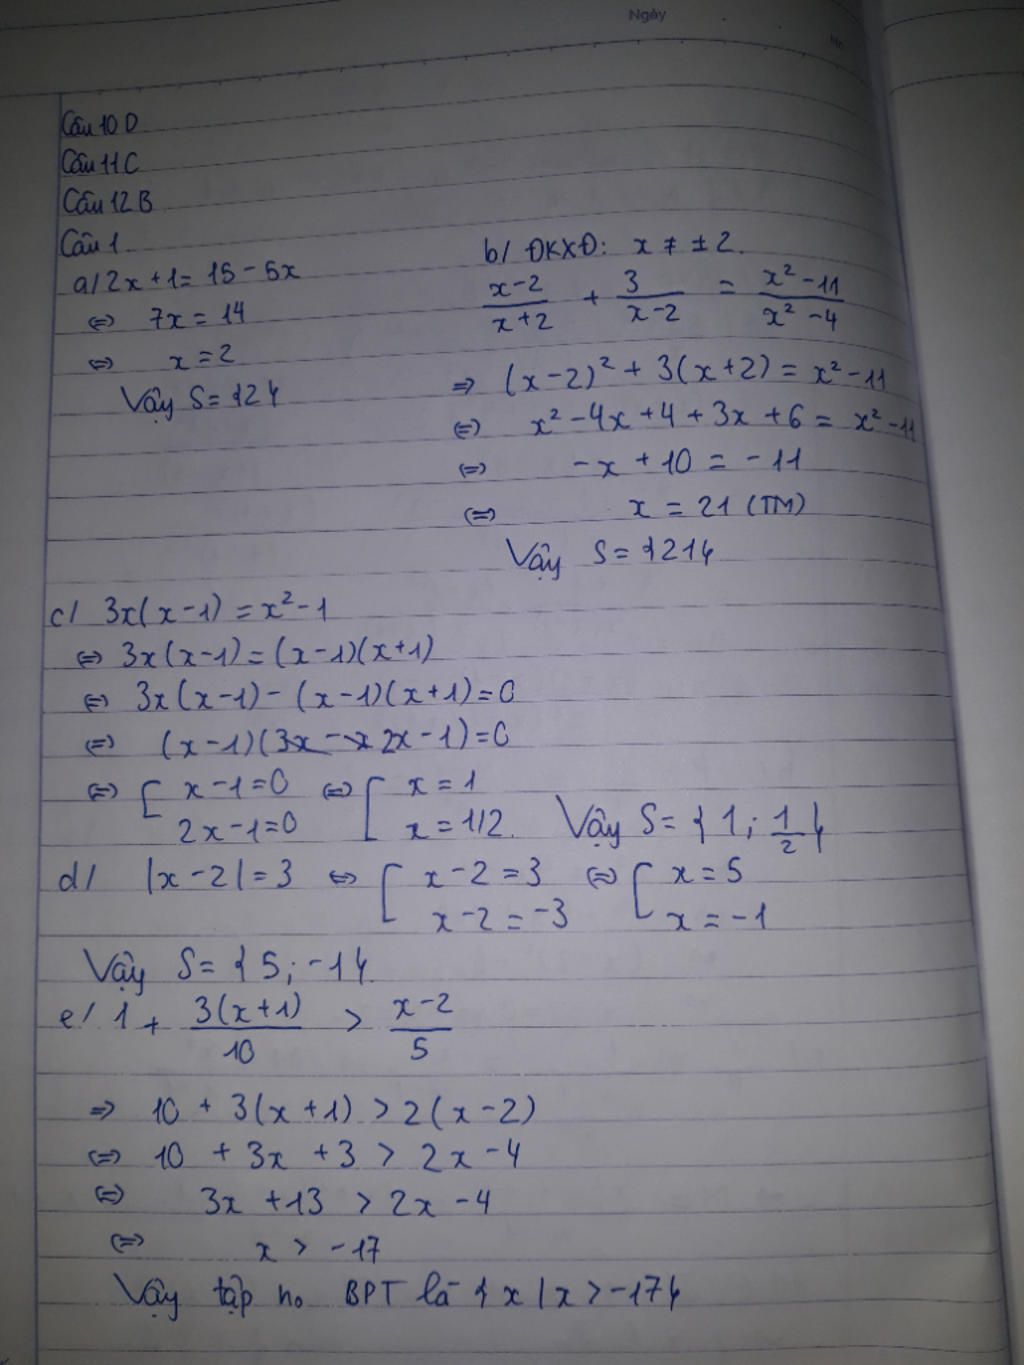 Ngày
No
Câu 10 D
Câu 11 C
Câu 12 B
Câu 1
a/ 2x + 1 = 15 - 5x
⇔ 7x = 14
⇔ x = 2
Vậy S = {2}
b/ ĐKXĐ: x ≠ ± 2.
\frac{x-2}{x+2} + \frac{3}{x-2} = \frac{x² - 11}{x² - 4}
⇒ (x-2)² + 3(x+2) = x² - 11
⇔ x² - 4x + 4 + 3x + 6 = x² - 11
⇔ -x + 10 = -11
⇔ x = 21 (TM)
Vậy S = {21}
c/ 3x(x-1) = x² - 1
⇔ 3x(x-1) = (x-1)(x+1)
⇔ 3x(x-1) - (x-1)(x+1) = 0
⇔ (x-1)(2x-1) = 0
⇔ [ x-1=0 ⇔ [ x = 1
2x-1=0 x = 1/2. Vậy S = {1; \frac{1}{2}}
d/ |x-2| = 3 ⇔ [ x-2 = 3 ⇔ [ x = 5
x-2 = -3 x = -1
Vậy S = {5; -1}
e/ 1 + \frac{3(x+1)}{10} > \frac{x-2}{5}
⇒ 10 + 3(x+1) > 2(x-2)
⇔ 10 + 3x + 3 > 2x - 4
⇔ 3x + 13 > 2x - 4
⇔ x > -17
Vậy tập no BPT là {x | x > -17}